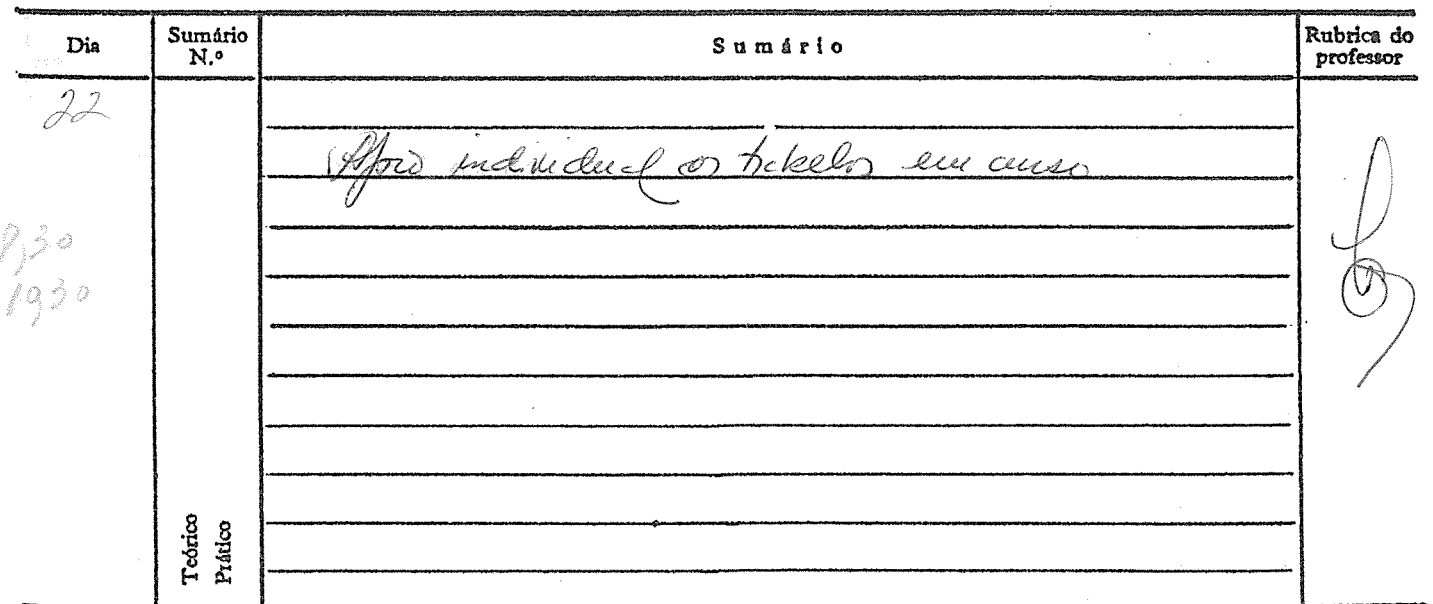 Dia
Sumário N.º
Sumário
Rubrica do professor
22
Apoio individual os trabalhos em curso
,30
1930
Teórico
Prático